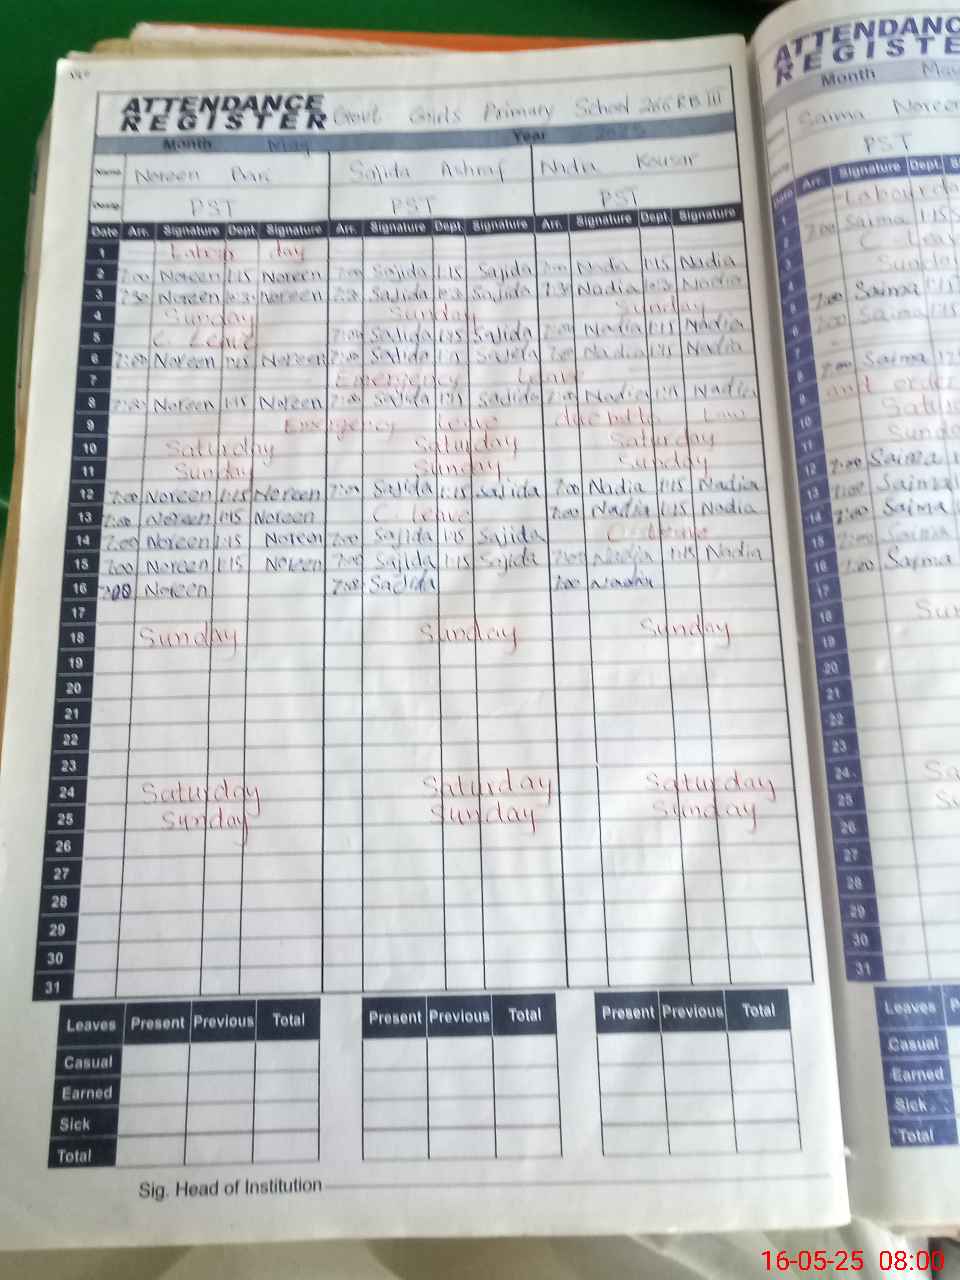 ATTENDANCE REGISTER Govt Girls Primary School 266 RB III
Month May Year 2025
Name Noreen Bari Sajida Ashraf Nadia Kousar
Desig. PST PST PST
Date Arr. Signature Dept. Signature Arr. Signature Dept. Signature Arr. Signature Dept. Signature
1 Labour day
2 7:00 Noreen 1:15 Noreen 7:00 Sajida 1:15 Sajida 7:00 Nadia 1:15 Nadia
3 7:30 Noreen Noreen Sajida Sajida Nadia Nadia
4 Sunday Sunday Sunday
5 C. Leave 7:00 Sajida 1:15 Sajida 7:00 Nadia 1:15 Nadia
6 7:00 Noreen 1:15 Noreen 7:00 Sajida Sajida 7:00 Nadia 1:15 Nadia
7 Emergency Leave
8 Noreen 1:15 Noreen 7:00 Sajida 1:15 Sajida 7:00 Nadia 1:15 Nadia
9 Emergency Leave due to Law
10 Saturday Saturday Saturday
11 Sunday Sunday Sunday
12 7:00 Noreen 1:15 Noreen 7:00 Sajida 1:15 Sajida 7:00 Nadia 1:15 Nadia
13 7:00 Noreen 1:15 Noreen C. Leave 7:00 Nadia 1:15 Nadia
14 7:00 Noreen 1:15 Noreen 7:00 Sajida 1:15 Sajida C. Leave
15 7:00 Noreen 1:15 Noreen 7:00 Sajida 1:15 Sajida 7:00 Nadia 1:15 Nadia
16 7:00 Noreen 7:00 Sajida 7:00 Nadia
17
18 Sunday Sunday Sunday
19
20
21
22
23
24 Saturday Saturday Saturday
25 Sunday Sunday Sunday
26
27
28
29
30
31
Leaves Present Previous Total Present Previous Total Present Previous Total
Casual
Earned
Sick
Total
Sig. Head of Institution
ATTENDANC
REGISTE
Month May
Saima Noreen
PST
Date Arr. Signature Dept. S
1 Labour da
2 7:00 Saima 1:15 S
3 C. Leav
4 Sunda
5 7:00 Saima 1:15
6 7:00 Saima 1:15
7
8 7:00 Saima
9 and order
10 Satu
11 Sunda
12 7:00 Saima
13 7:00 Saima
14 7:00 Saima
15 7:00 Saima
16 7:00 Saima
17
18 Su
19
20
21
22
23
24 Sa
25 Su
26
27
28
29
30
31
Leaves P
Casual
Earned
Sick
Total
16-05-25 08:00